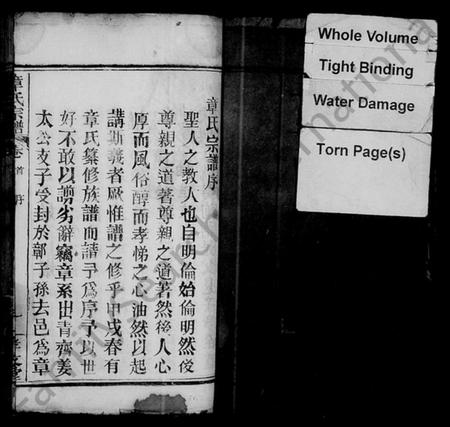 章氏宗譜序
聖人之教人也自明倫始倫明然後
尊親之道著尊親之道著然後人心
厚而風俗醇而孝悌之心油然以起
講斯義者厥惟譜之修乎甲戌春有
章氏纂修族譜而請予為序予以世
好不敢以謭劣辭竊章系出青齊姜
太公支子受封於鄣子孫去邑為章
章氏宗譜 卷首 序
Whole Volume
Tight Binding
Water Damage
Torn Page(s)
FamilySearch International